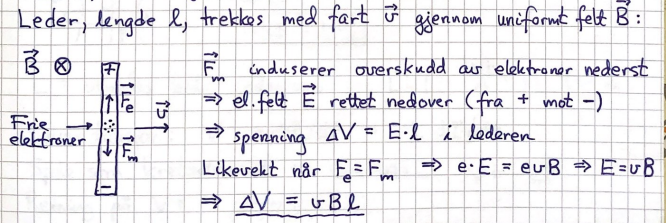 Leder, lengde l, trekkes med fart v⃗ gjennom uniformt felt B⃗:
B⃗ ⊗
+
F⃗e
v⃗
Frie
elektroner
F⃗m
−
F⃗m induserer overskudd av elektroner nederst
⇒ el. felt E⃗ rettet nedover (fra + mot −)
⇒ spenning ΔV = E·l i lederen
Likevekt når Fe = Fm ⇒ e·E = evB ⇒ E = vB
⇒ ΔV = vBl